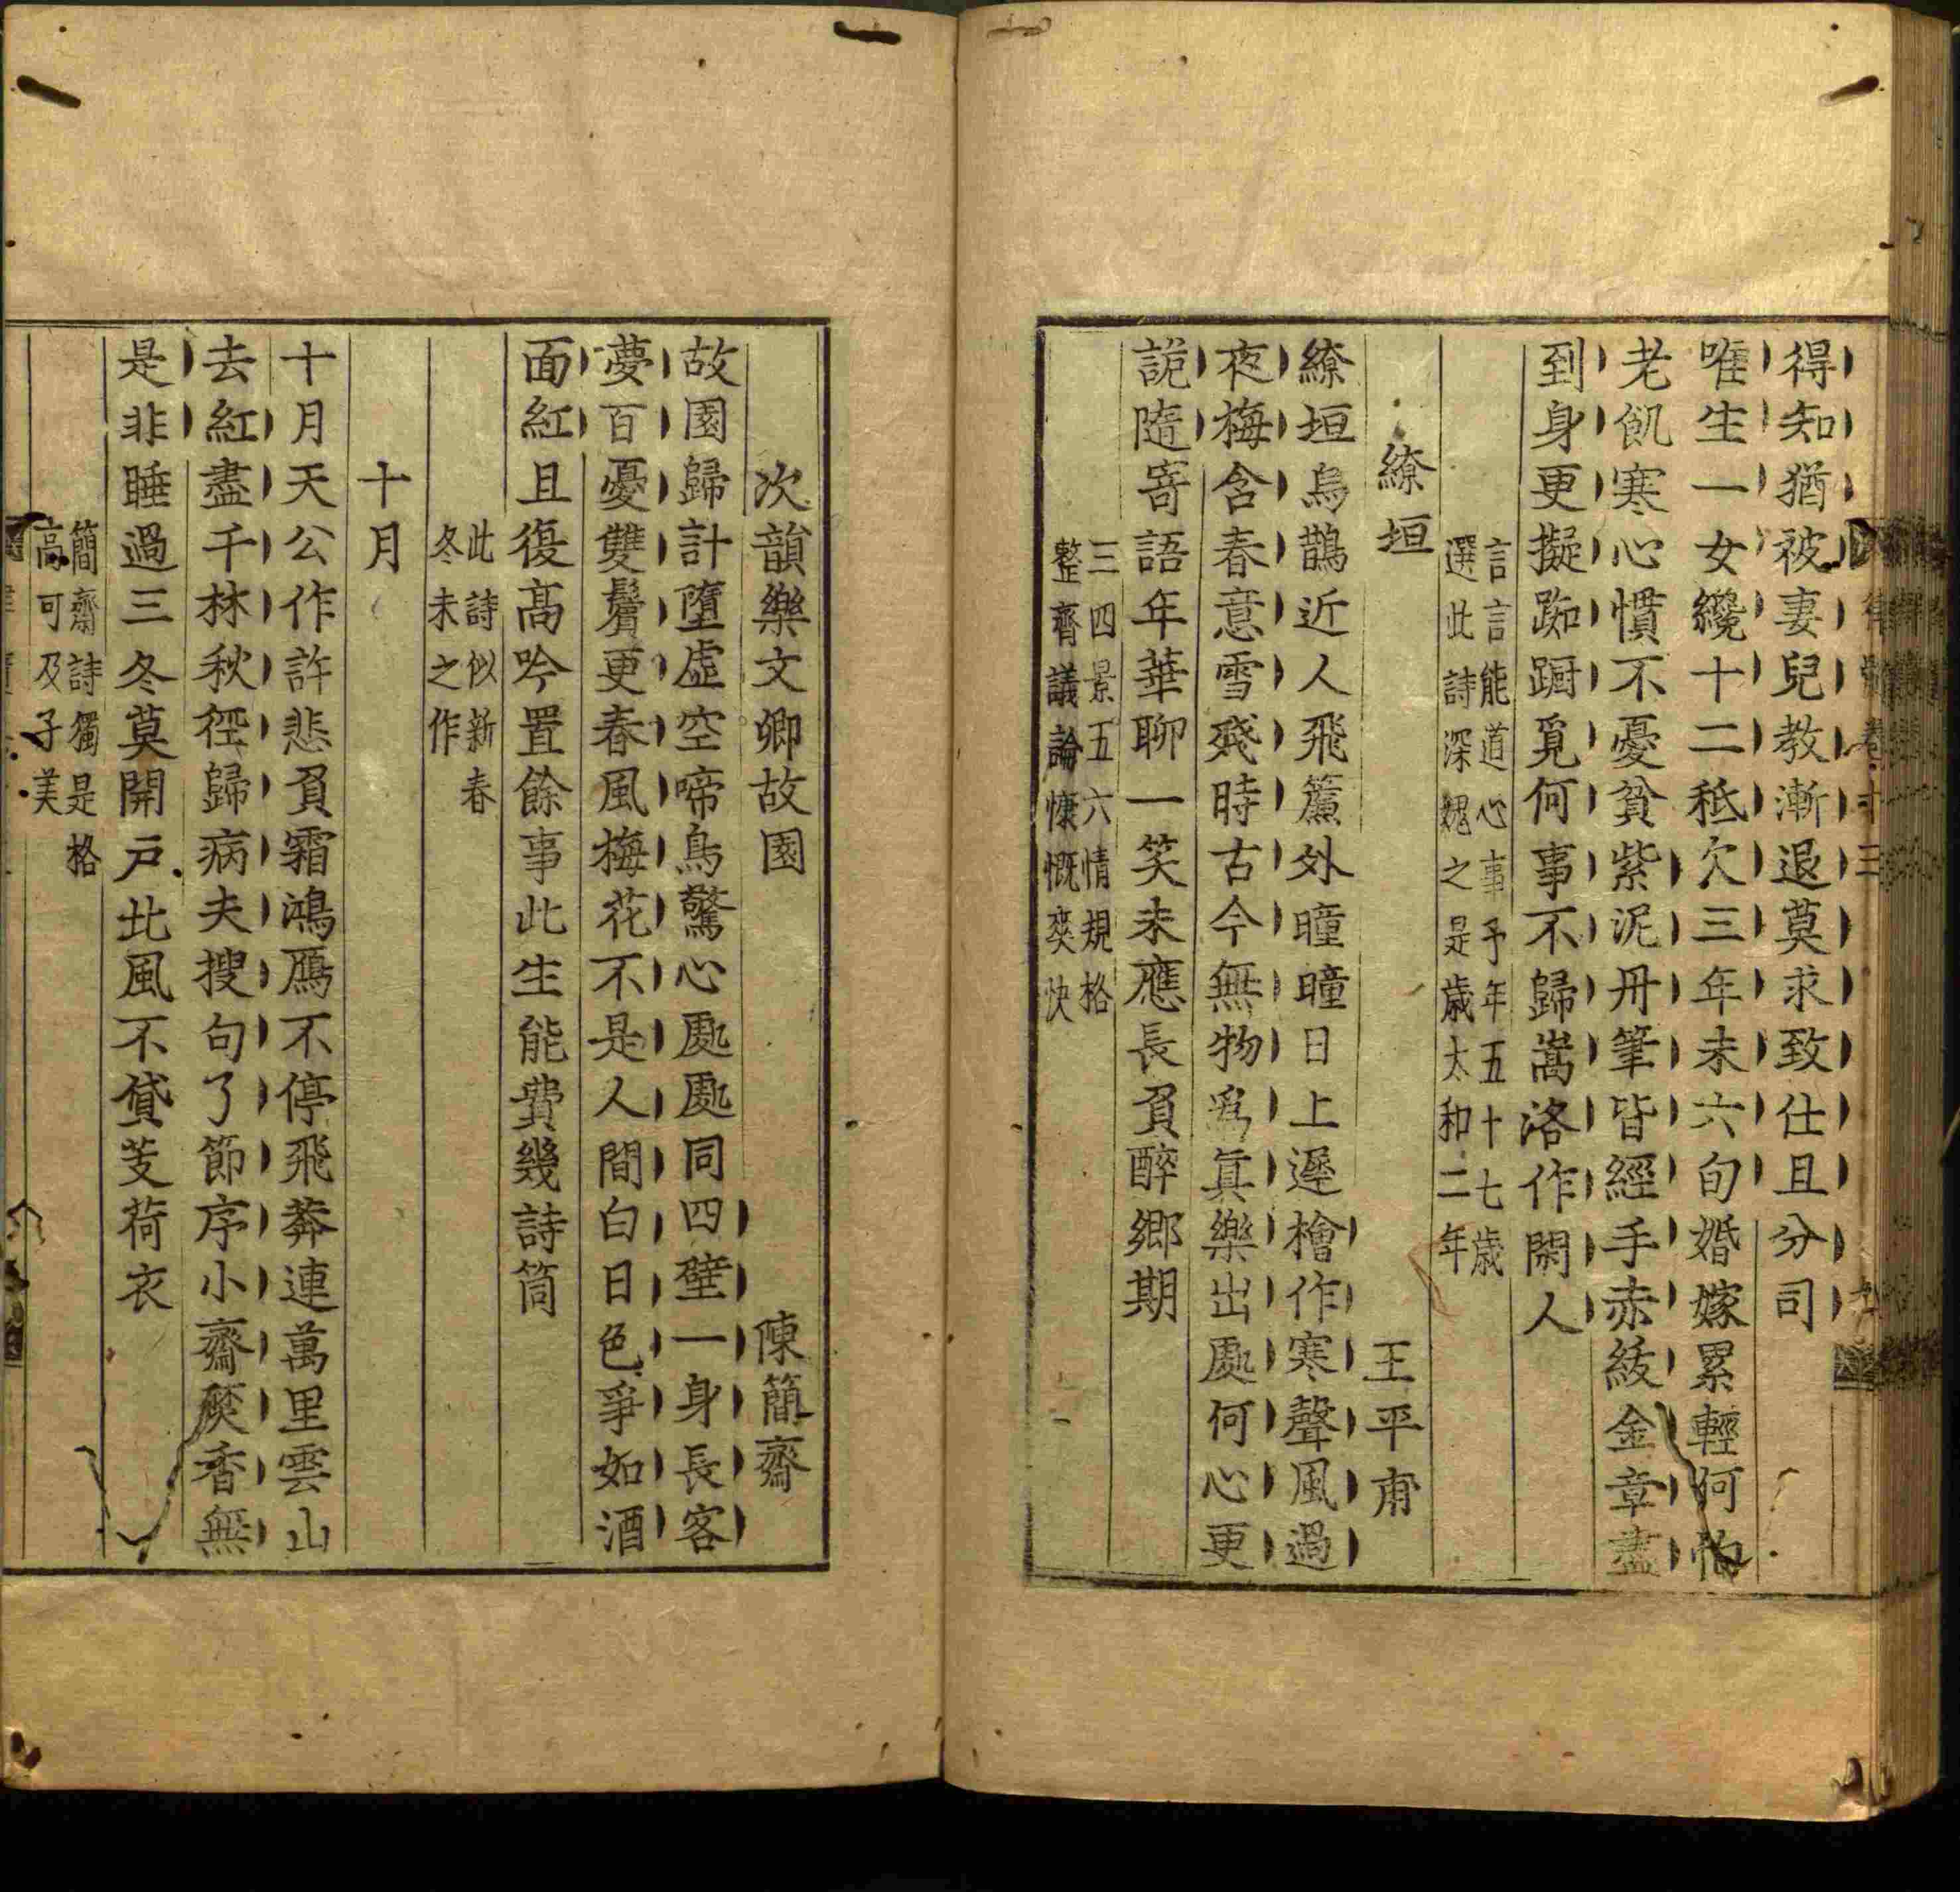 得知猶被妻兒教漸退莫求致仕且分司
唯生一女纔十二秪欠三年未六旬婚嫁累輕何怕
老飢寒心慣不憂貧紫泥丹筆皆經手赤紱金章盡
到身更擬踟蹰覓何事不歸嵩洛作閑人
言言能道心事予年五十七歲
選此詩深媿之是歲太和二年
繚垣 王平甫
繚垣烏鵲近人飛簾外曈曈日上遲檜作寒聲風過
夜梅含春意雪殘時古今無物爲眞樂出處何心更
詭隨寄語年華聊一笑未應長負醉鄉期
三四景五六情規格
整齊議論慷慨爽快
次韻樂文卿故園 陳簡齋
故園歸計墮虛空啼鳥驚心處處同四壁一身長客
夢百憂雙鬢更春風梅花不是人間白日色爭如酒
面紅且復高吟置餘事此生能費幾詩筒
此詩似新春
冬未之作
十月
十月天公作許悲負霜鴻鴈不停飛莽連萬里雲山
去紅盡千林秋徑歸病夫搜句了節序小齋焚香無
是非睡過三冬莫開戸北風不貸芰荷衣
簡齋詩獨是格
高可及子美